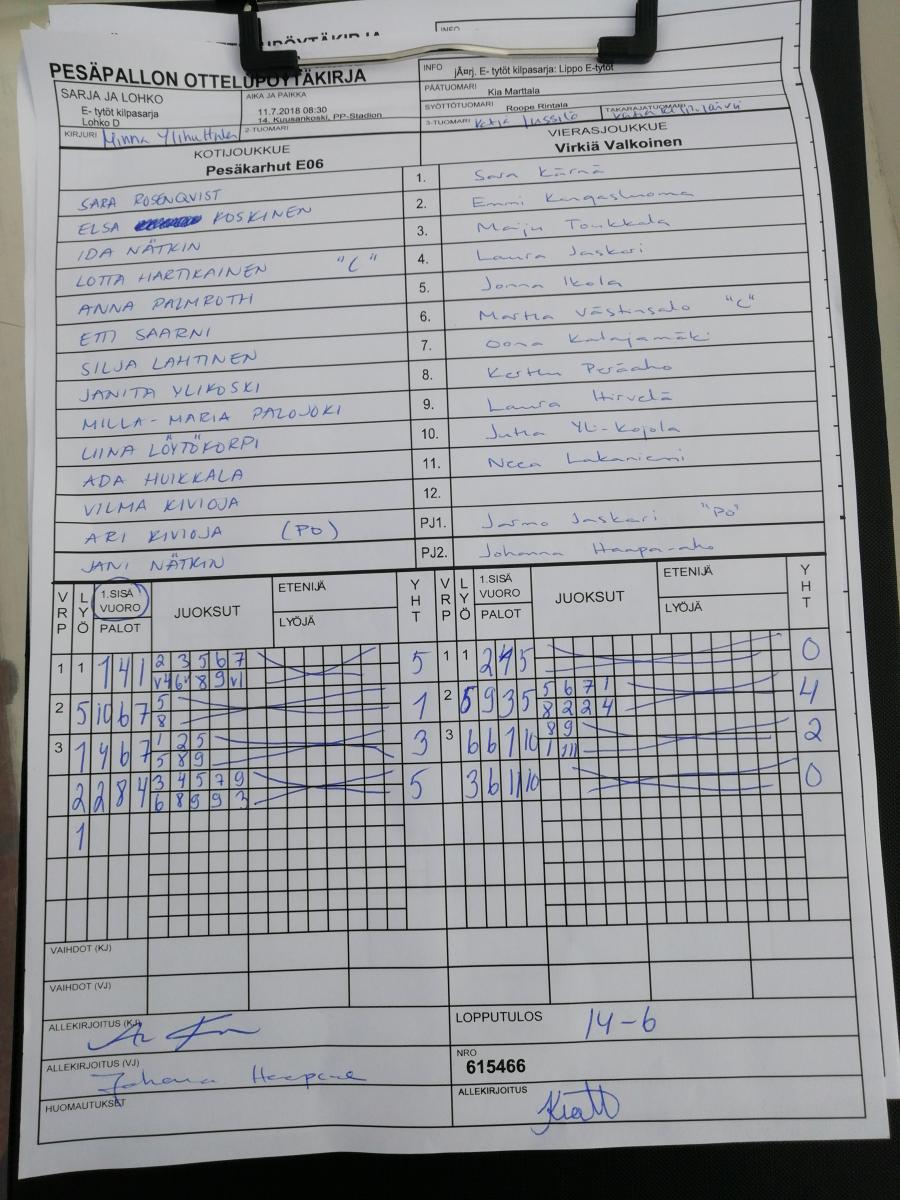 PESÄPALLON OTTELUPÖYTÄKIRJA
INFO jÃ¤rj. E- tytöt kilpasarja: Lippo E-tytöt
SARJA JA LOHKO
E- tytöt kilpasarja
Lohko D
AIKA JA PAIKKA
11.7.2018 08:30
14. Kuusankoski, PP-Stadion
PÄÄTUOMARI Kia Marttala
SYÖTTÖTUOMARI Roope Rintala
TAKARAJATUOMARI
KIRJURI Minna Ylihuttula
2-TUOMARI
3-TUOMARI Katja
KOTIJOUKKUE
Pesäkarhut E06
VIERASJOUKKUE
Virkiä Valkoinen
SARA ROSENQVIST 1. Sara Kärnä
ELSA KOSKINEN 2. Emmi Kangasluoma
IDA NÄTKIN 3. Maiju Toukkala
LOTTA HARTIKAINEN "C" 4. Laura Jaskari
ANNA PALMROTH 5. Jonna Ikola
ETTI SAARNI 6. Martta Västinsalo "C"
SILJA LAHTINEN 7. Oona Katajamäki
JANITA YLIKOSKI 8. Kerttu Peräaho
MILLA-MARIA PALOJOKI 9. Laura Hirvelä
LIINA LÖYTÖKORPI 10. Jutta Yli-Kojola
ADA HUIKKALA 11. Neea Lakaniemi
VILMA KIVIOJA 12.
ARI KIVIOJA (PO) PJ1. Jarmo Jaskari "PO"
JANI NÄTKIN PJ2. Johanna Haapa-aho
VRP LYÖ 1.SISÄ VUORO PALOT JUOKSUT ETENIJÄ LYÖJÄ YHT VRP LYÖ 1.SISÄ VUORO PALOT JUOKSUT ETENIJÄ LYÖJÄ YHT
1 1 1 4 1 2 3 5 6 7 5 1 1 2 4 5 0
8 9
2 5 10 6 7 5 1 2 5 9 3 5 5 6 7 1 4
8 8 2 2 4
3 1 4 6 7 1 2 5 3 3 6 6 1 10 8 9 2
5 8 9 1
2 2 8 4 3 4 5 7 9 5 3 6 11 10 0
6 8 9 9 3
1
VAIHDOT (KJ)
VAIHDOT (VJ)
ALLEKIRJOITUS (KJ)
LOPPUTULOS 14-6
ALLEKIRJOITUS (VJ) Johanna
NRO
615466
HUOMAUTUKSET
ALLEKIRJOITUS